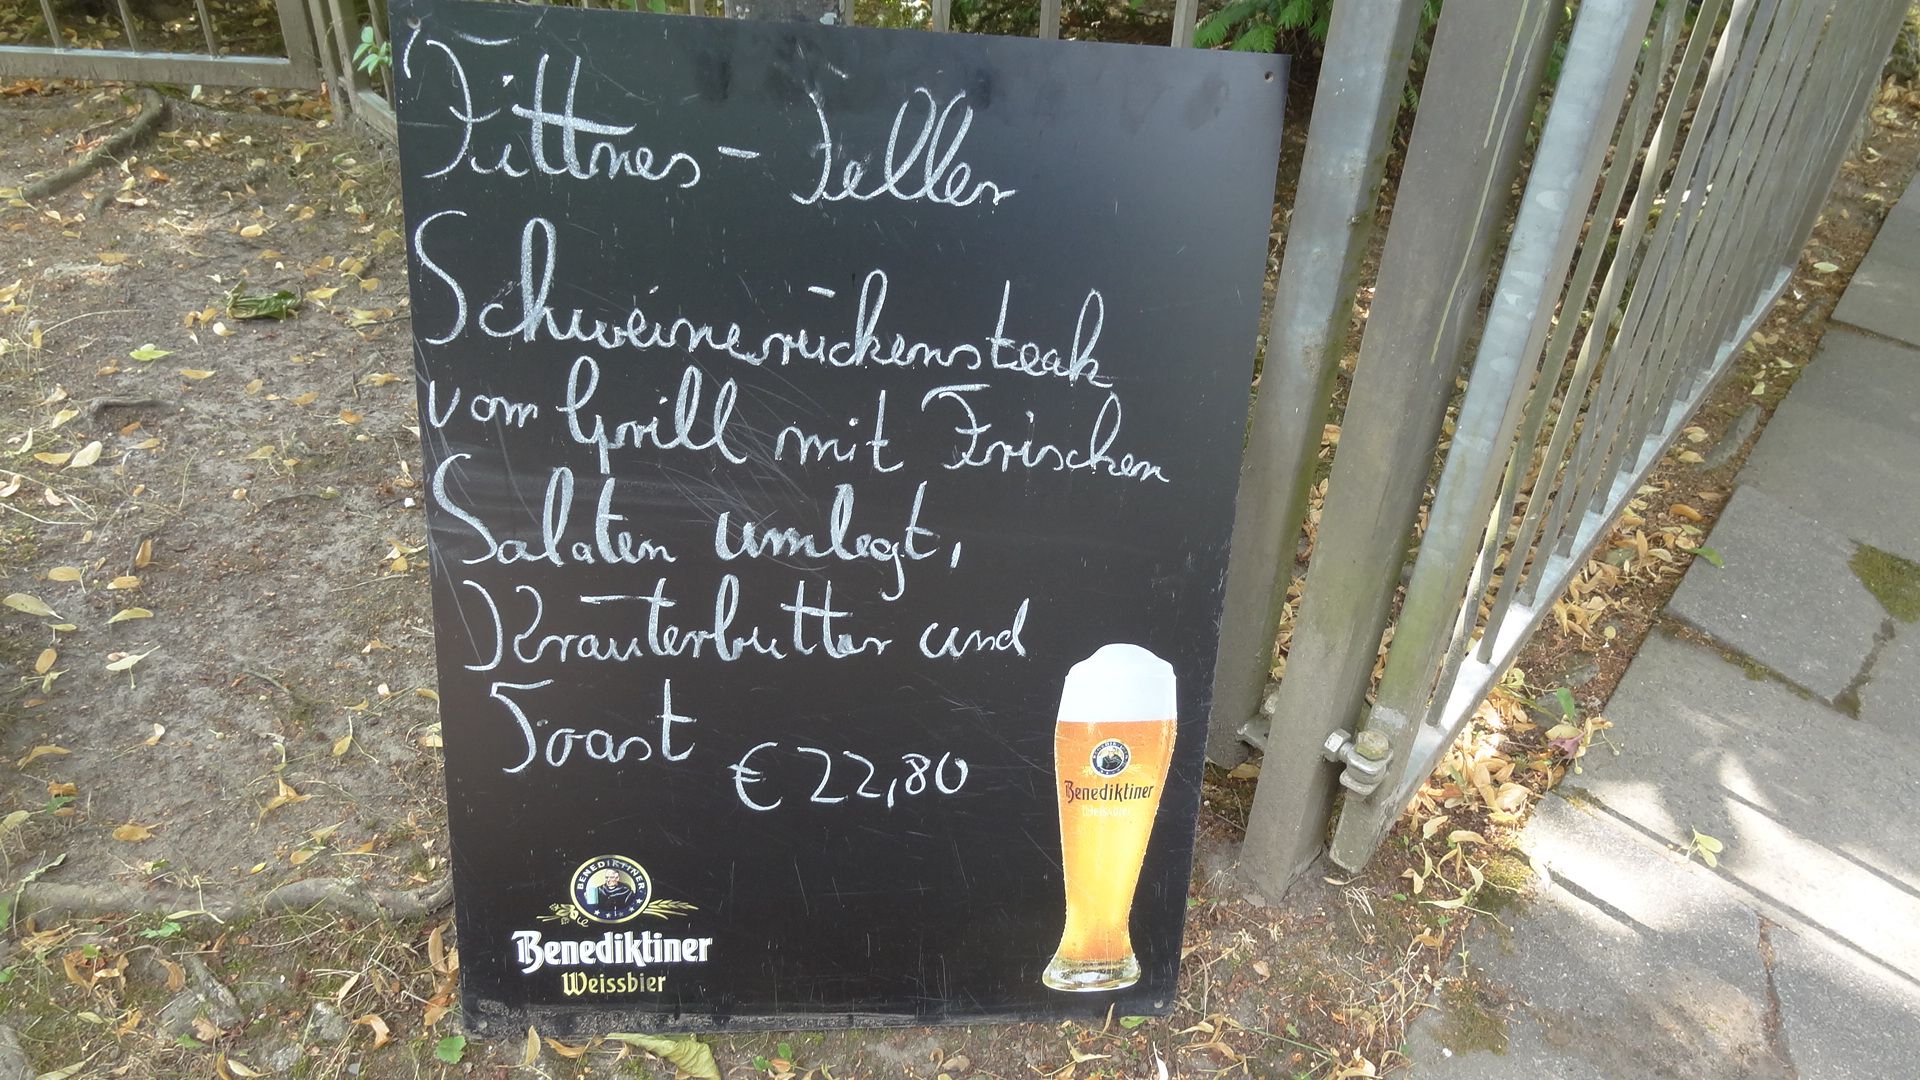 Füttnes - Teller
Schweinerückensteak
vom Grill mit Frischen
Salaten umlegt,
Kräuterbutter und
Toast
€ 22,80
Benediktiner
Weissbier
BENEDIKTINER
Benediktiner
Weissbier